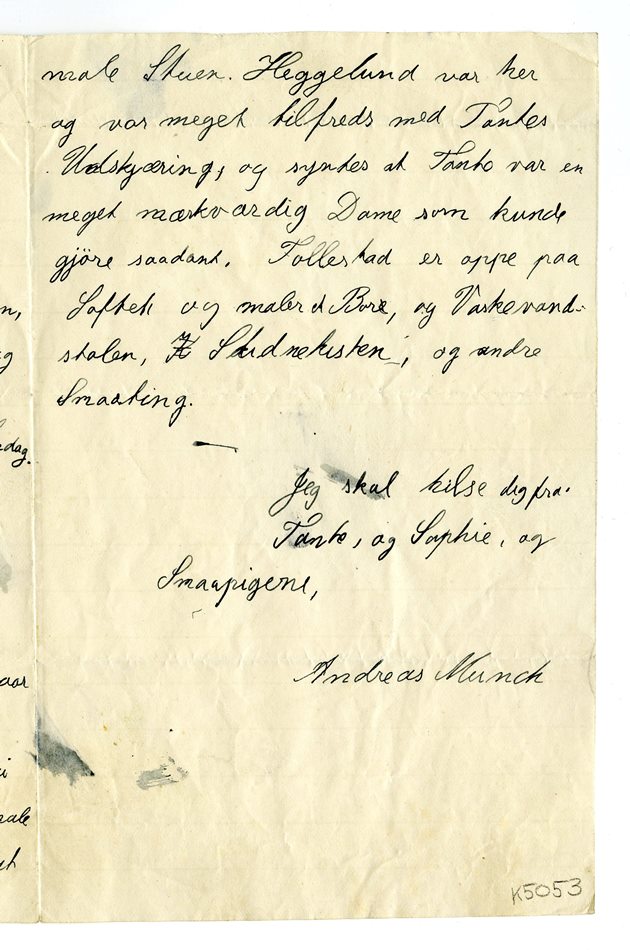 male Stuen. Heggelund var her
og var meget tilfreds med Tantes
Udskjæring, og syntes at Tante var en
meget mærkværdig Dame som kunde
gjöre saadant. Tollestad er oppe paa
Loftet og maler et Bord, og Vaskevand-
stolen, og andre
Smaating.
Jeg skal hilse dig fra
Tante, og Sophie, og
Smaapigene,
Andreas Munch
K5053
n,
g
dag.
aar
i
male